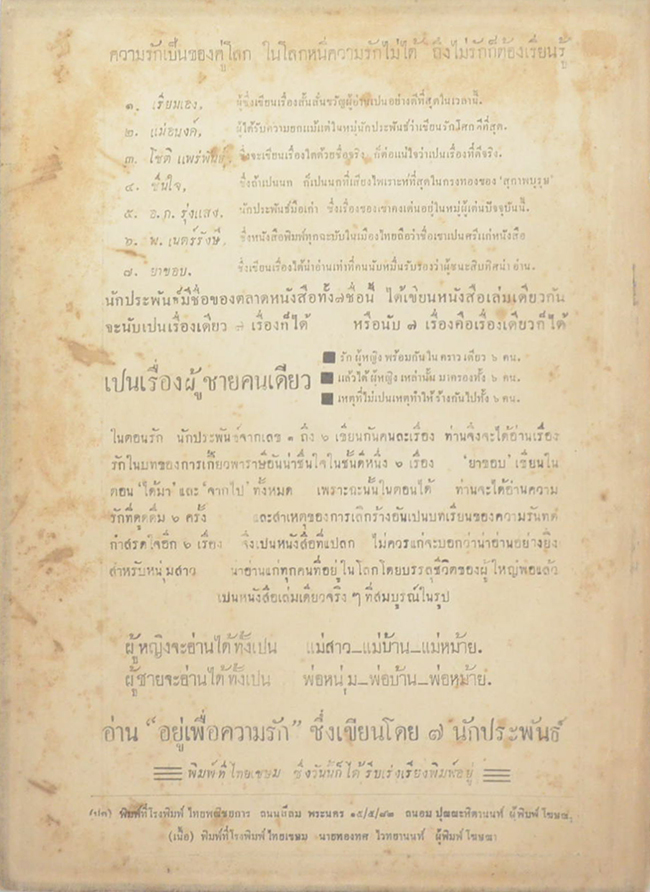 ความรักเป็นของคู่โลก ในโลกหนีความรักไม่ได้ ถึงไม่รักก็ต้องเรียนรู้
๑. เรียมเอง, ผู้ซึ่งเขียนเรื่องสั้นสั่นขวัญผู้อ่านเปนอย่างดีที่สุดในเวลานี้.
๒. แม่อนงค์, ผู้ได้รับความยอมแม้แต่ในหมู่นักประพันธ์ว่าเขียนรักโศกดีที่สุด.
๓. โชติ แพร่พันธุ์, ซึ่งจะเขียนเรื่องใดด้วยชื่อจริง ก็ต่อแน่ใจว่าเป็นเรื่องที่ดีจริง.
๔. ชื่นใจ, ซึ่งถ้าเปนนก ก็เปนนกที่เสียงไพเราะห์ที่สุดในกรงทองของ 'สุภาพบุรุษ'
๕. อ. ก. รุ่งแสง, นักประพันธ์มือเก่า ซึ่งเรื่องของเขาคงเด่นอยู่ในหมู่ผู้เด่นปัจจุบันนี้.
๖. พ. เนตร์รังษี, ซึ่งหนังสือพิมพ์ทุกฉะบับในเมืองไทยถือว่าชื่อเขาเปนศรีแก่หนังสือ
๗. ยาขอบ. ซึ่งเขียนเรื่องใดน่าอ่านเท่งที่คนนับหมื่นรับรองว่าผู้ชนะสิบทิศน่าอ่าน.
นักประพันธ์มีชื่อของตลาดหนังสือทั้ง๗ชื่อนี้ ได้เขียนหนังสือเล่มเดียวกัน
จะนับเปนเรื่องเดียว ๗ เรื่องก็ได้ หรือนับ ๗ เรื่องคือเรื่องเดียวก็ได้
เปนเรื่องผู้ชายคนเดียว
รัก ผู้หญิง พร้อมกันใน คราว เดียว ๖ คน.
แล้วได้ ผู้หญิง เหล่านั้น มาครองทั้ง ๖ คน.
เหตุที่ไม่เปนเหตุทำให้ร้างกันไปทั้ง ๖ คน.
ในตอนรัก นักประพันธ์จากเลข ๑ ถึง ๖ เขียนกันคนละเรื่อง ท่านจึงจะได้อ่านเรื่อง
รักในบทของการเกี้ยวพาราษีอันน่าชื่นใจในชั้นดีหนึ่ง ๖ เรื่อง 'ยาขอบ' เขียนใน
ตอน 'ได้มา' และ 'จากไป' ทั้งหมด เพราะฉะนั้นในตอนได้ ท่านจะได้อ่านความ
รักที่ดูดดื่ม ๖ ครั้ง และสาเหตุของการเลิกร้างอันเปนบทเรียนของความรันทด
กำสรดใจอีก ๖ เรื่อง จึงเปนหนังสือที่แปลก ไม่ควรแก่จะบอกว่าน่าอ่านอย่างยิ่ง
สำหรับหนุ่มสาว น่าอ่านแก่ทุกคนที่อยู่ในโลกโดยบรรลุชีวิตของผู้ใหญ่พอแล้ว
เปนหนังสือเล่มเดียวจริง ๆ ที่สมบูรณ์ในรูป
ผู้หญิงจะอ่านได้ทั้งเปน แม่สาว–แม่บ้าน–แม่หม้าย.
ผู้ชายจะอ่านได้ทั้งเปน พ่อหนุ่ม–พ่อบ้าน–พ่อหม้าย.
อ่าน "อยู่เพื่อความรัก" ซึ่งเขียนโดย ๗ นักประพันธ์
พิมพ์ที่ไทยเขษม ซึ่งวันนี้ก็ได้รีบเร่งเรียงพิมพ์อยู่
(ปก) พิมพ์ที่โรงพิมพ์ ไทยพณิชยการ ถนนตีลม พระนคร ๑๕/๕/๘๓ ถนอม ปุณณะหิตานนท์ ผู้พิมพ์ โฆษณา,
(เนื้อ) พิมพ์ที่โรงพิมพ์ ไทยเขษม นายทองทศ ไวทยานนท์ ผู้พิมพ์ โฆษณา